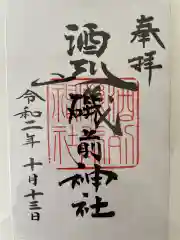 奉拝
酒列
磯前神社
令和二年十月十三日